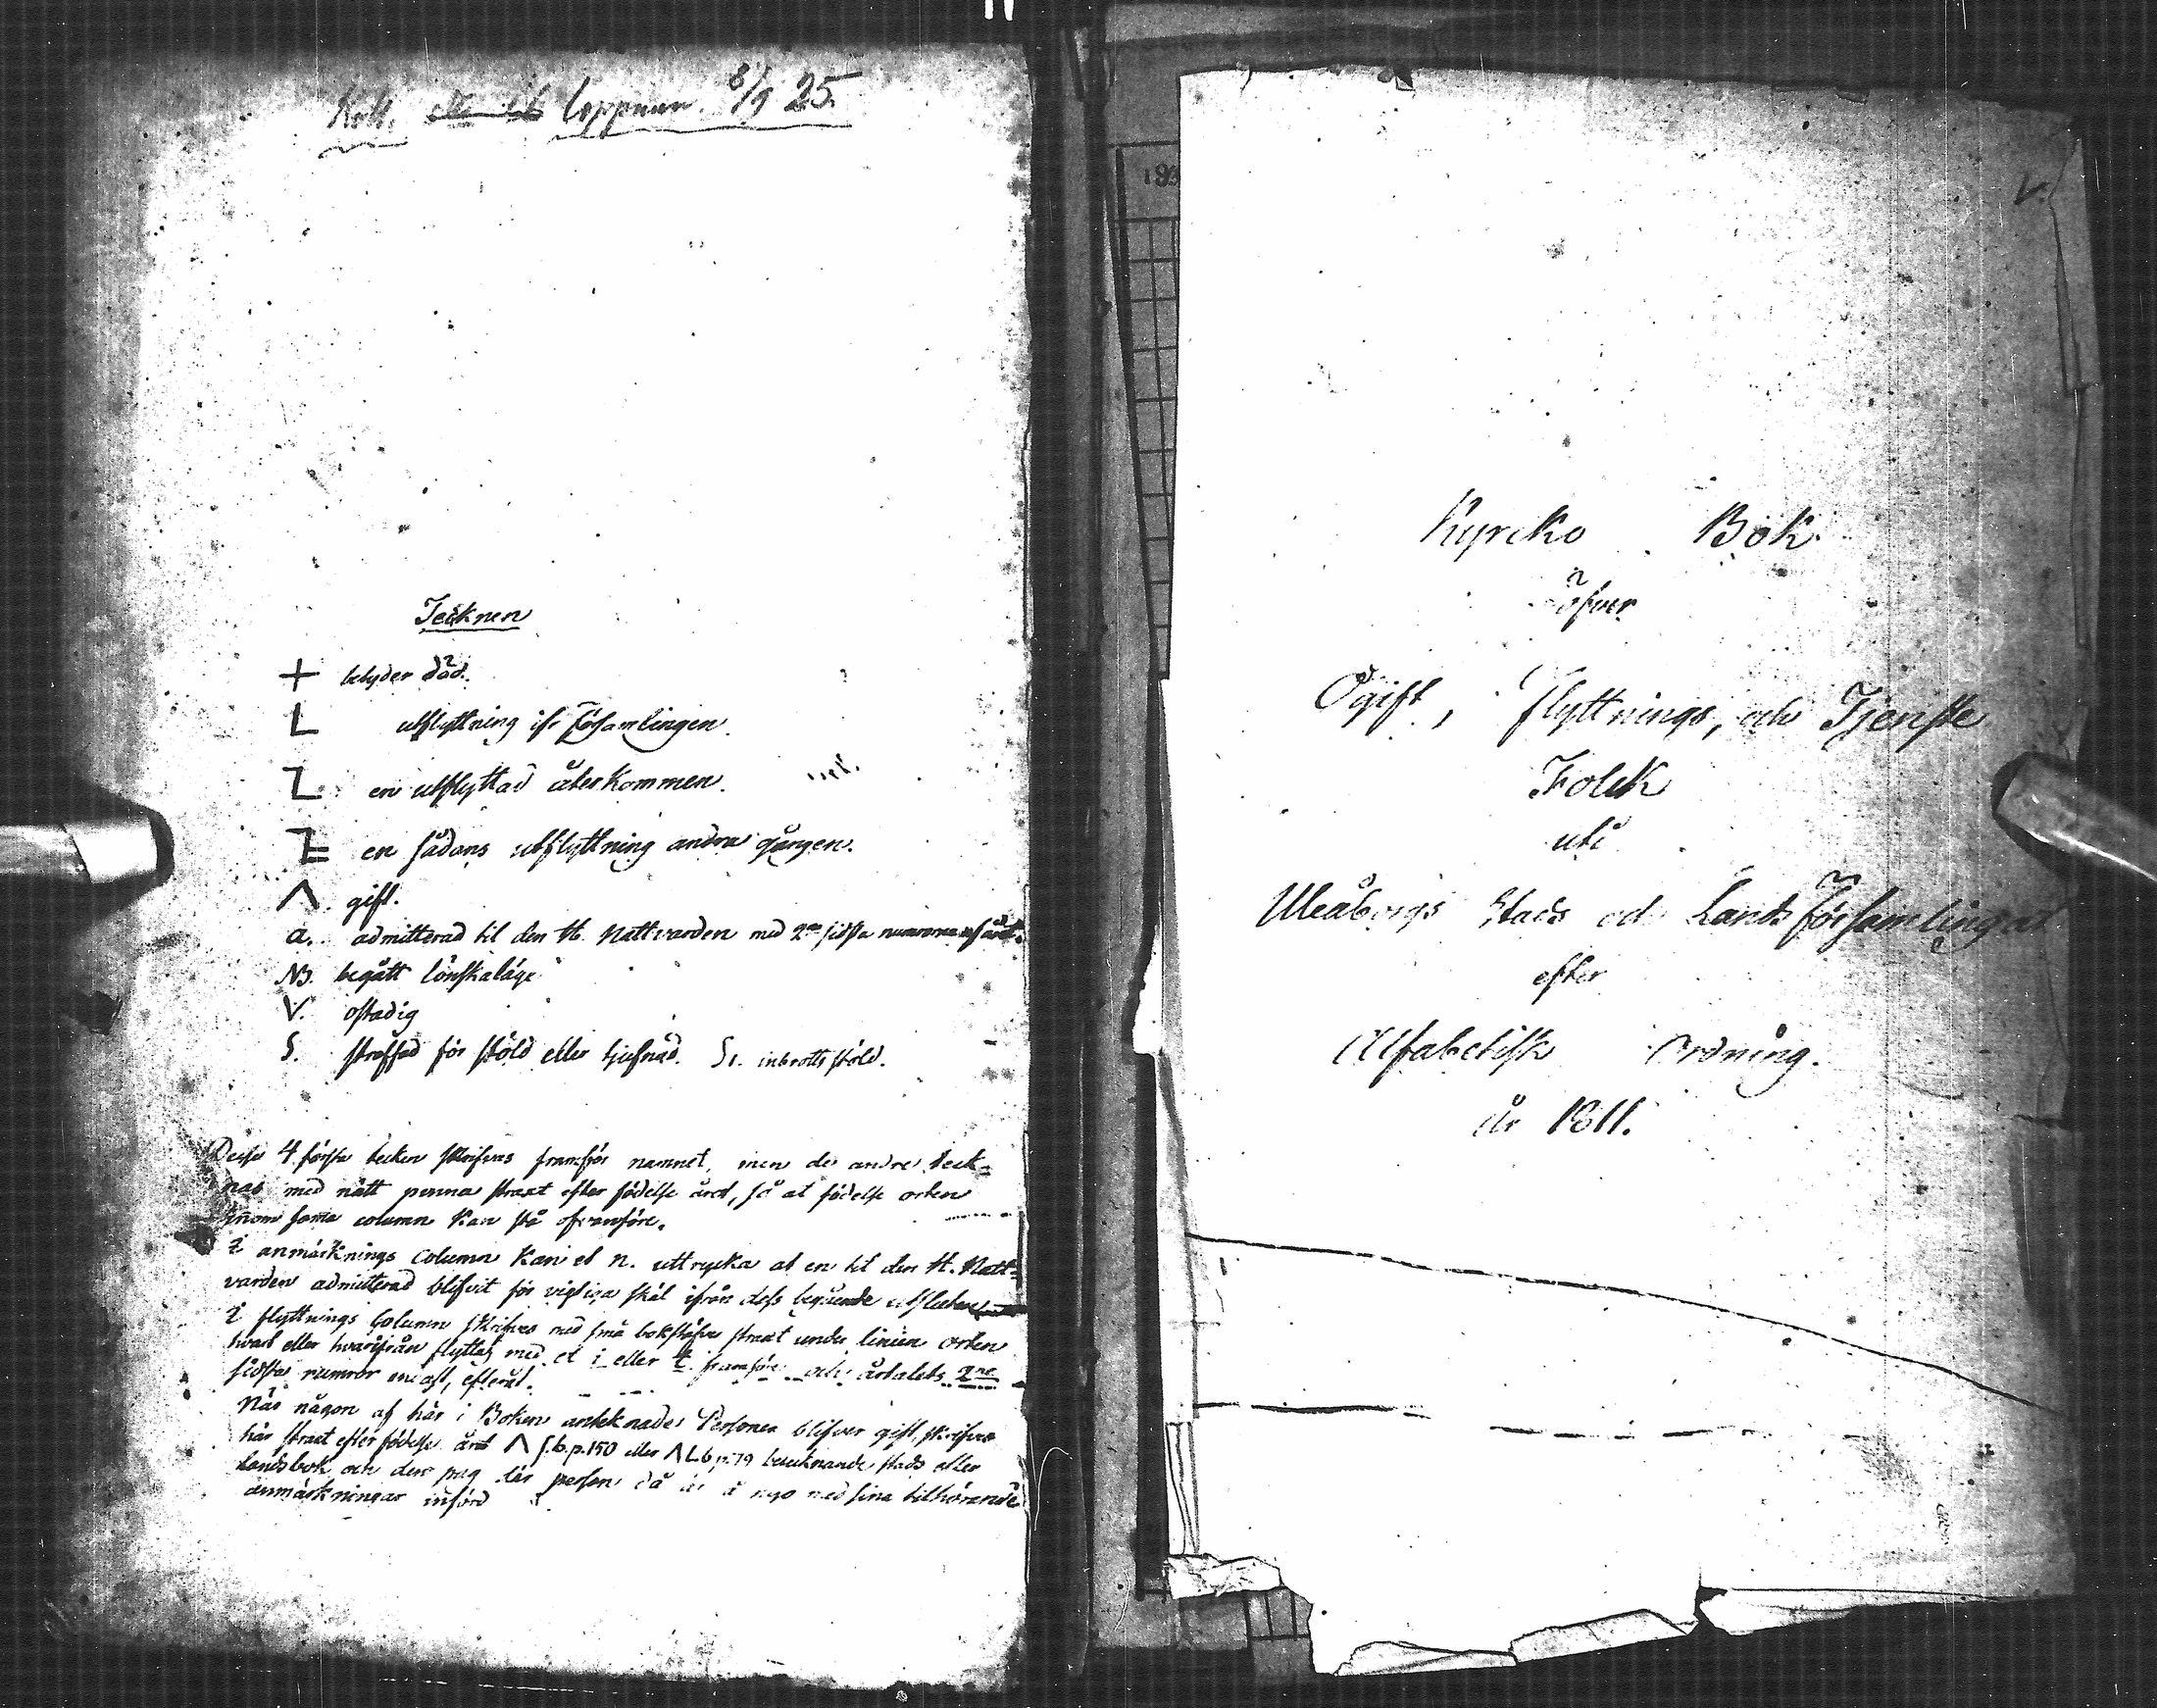 Koll. loppuun 8/9 25.
Tecknen
+ betyder död.
L utflyttning ifr församlingen.
en utflyttad återkommen.
en sådans utflyttning andra gången.
Λ gift.
a. admitterad til den H. Nattvarden med 2ne sidsta numrorna af året.
NB. begått lönskaläge
V. ostadig
S. straffad för stöld eller tjufnad. S1. inbrotts stöld.
Desse 4 första tecken skrifvas framför namnet, men de andre teck-
nas med nätt penna straxt efter födelse året, så at födelse orten
innom sama column kan stå ofvanföre.
I anmärknings Column kan et n. uttrycka at en til den H. Natt-
varden admitterad blifvit för vigtiga skäl ifrån dess begående utsluten
I flyttnings Column skrifves med små bokstäfver straxt under linien orten
hvart eller hvarifrån flyttas med et i eller t framföre och årtalets 2ne
sidsta numror med, efteråt.
När någon af här i Boken antecknade Personer blifver gift, skrifves
här straxt efter födelse året Λ S.b.p.150 eller Λ L.b.p.79 betecknande stads eller
landsbok och den pag der person då är å nyo med sina tilhörande
anmärkningar införd
193
V.
Kyrcko Bok
öfver
Ogift, flyttnings, och Tjenste
Folck
uti
Uleåborgs Stads och Lands Församlingar
efter
Alfabetisk Ordning.
År 1811.